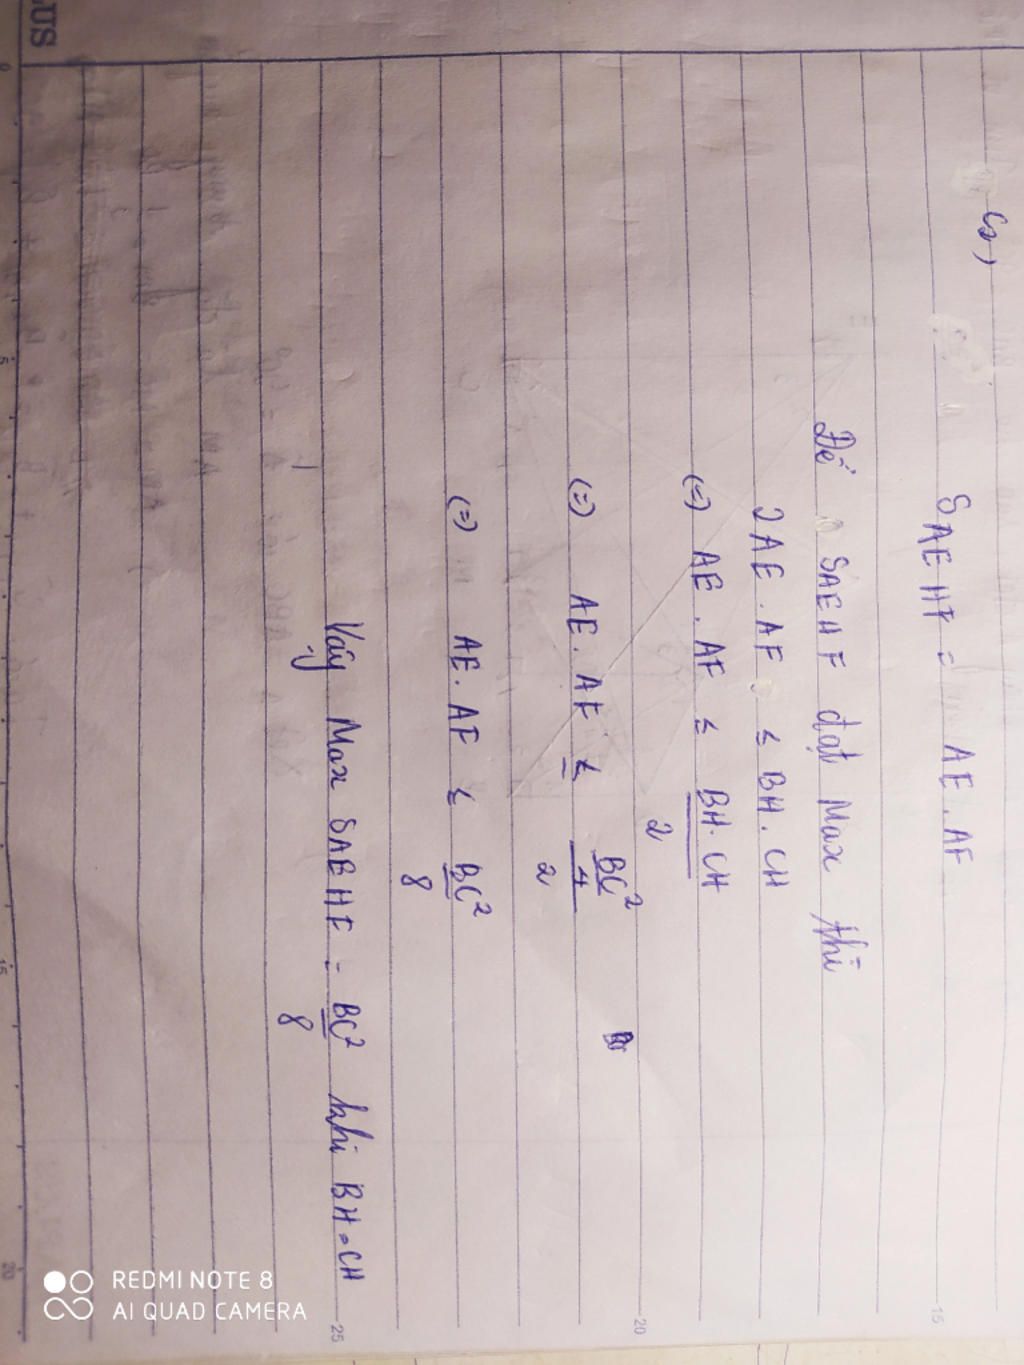 c2)
SAEHF = AE.AF
Để SAEHF đạt Max thì
2AE.AF ≤ BH.CH
(=) AE.AF ≤ BH.CH
2
(=) AE.AF ≤ BC²
4
2
(=) AE.AF ≤ BC²
8
Vậy Max SAEHF = BC² khi BH=CH
8
REDMI NOTE 8
AI QUAD CAMERA
US
0
5
15
20
15
20
25